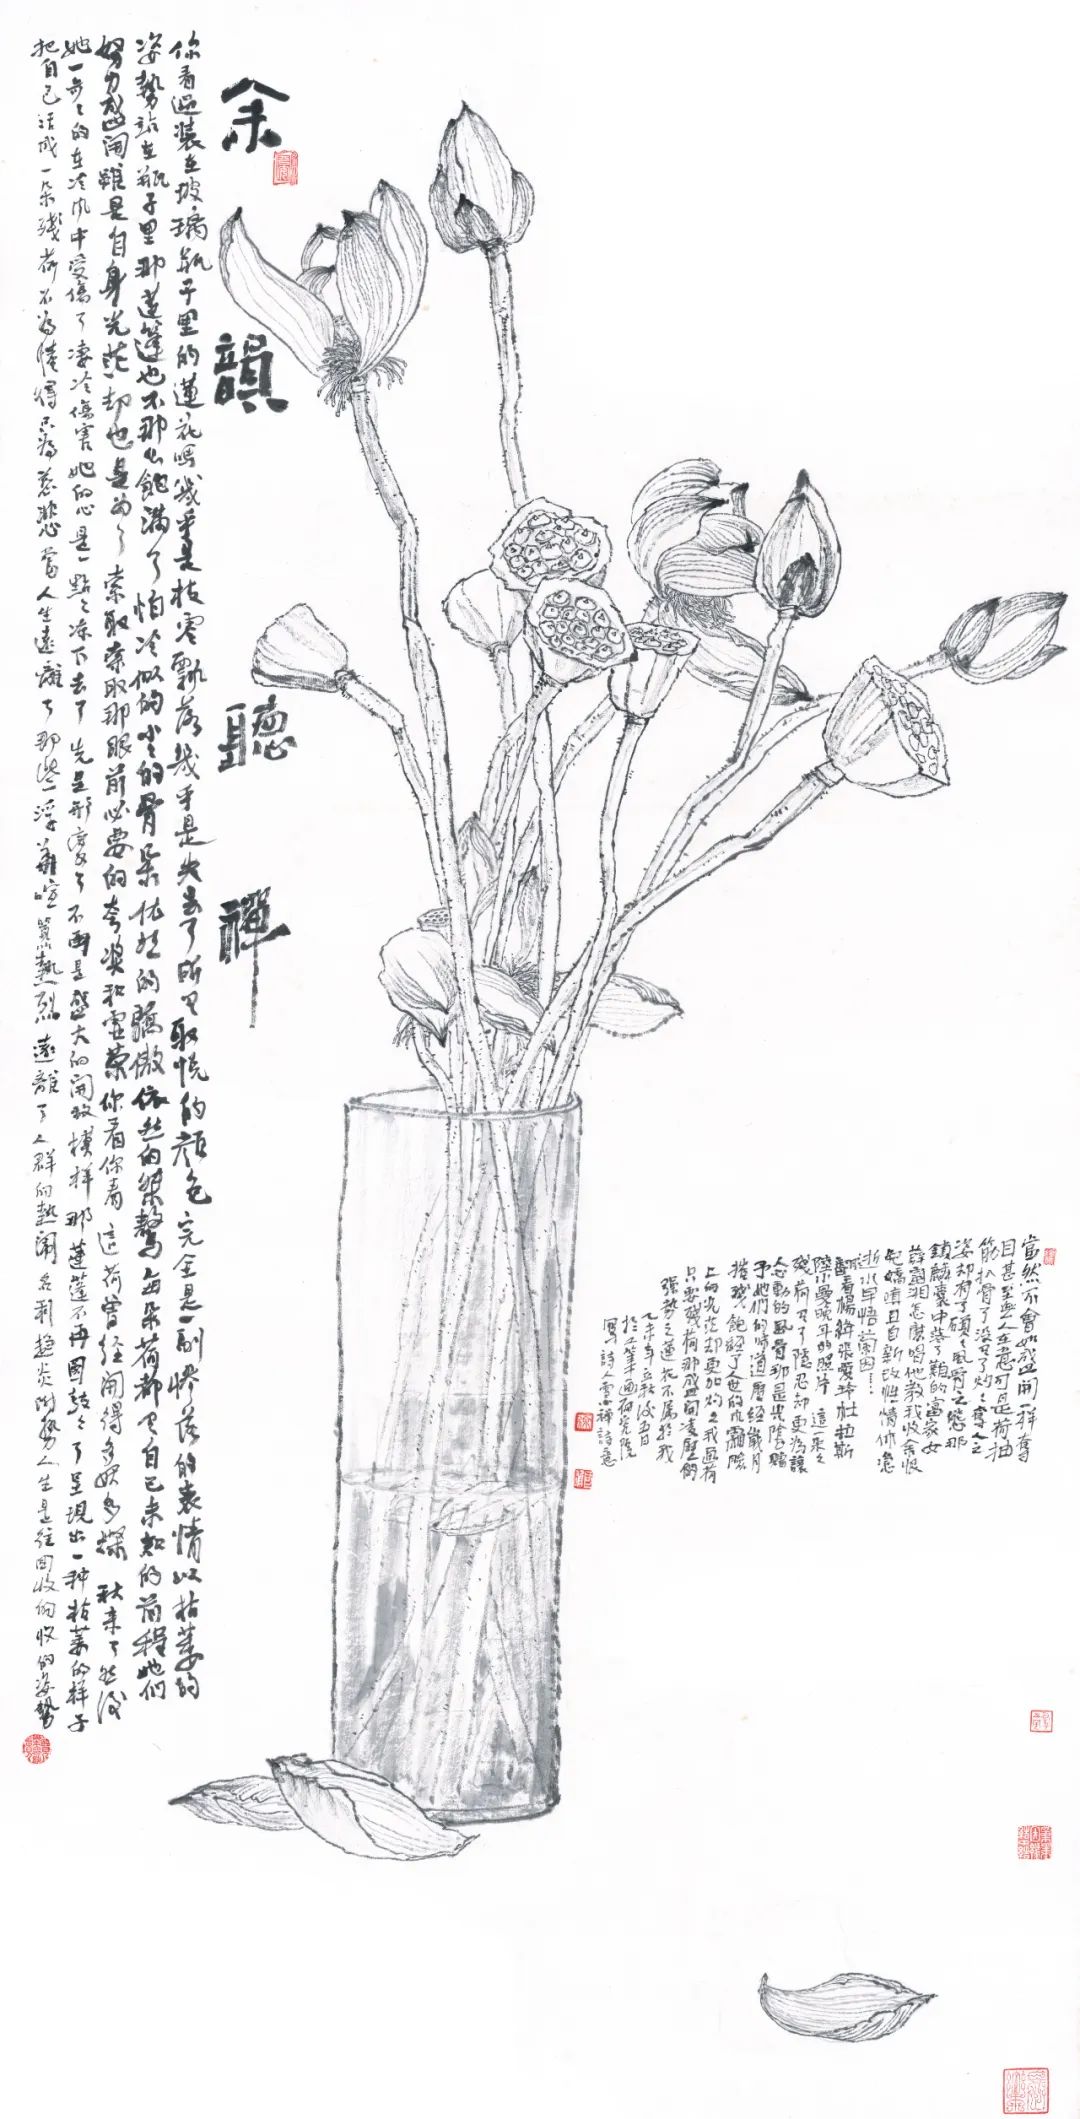 余韻聽禪
你看過裝在玻璃瓶子里的蓮花嗎幾乎是枝零飄落幾乎是失去了所有取悅的顏色完全是一副慘落的表情以枯萎的
姿勢站在瓶子里那蓮蓬也不那么飽滿了怕冷似的小小的骨朵依然的驕傲依然的桀驁每朵荷都有自己未知的前程她們
努力盛開雖是自身光芒却也是為了索取索取那眼前必要的夸奖和虛榮你看你看這荷曾經開得多妖多嬈秋來了然後
她一步步的在冷风中受傷了凄冷傷害她的心是一點點凉下去了先是形變了不再是盛大的開放模样那蓮蓬不再圆鼓鼓了呈現出一种枯萎的样子
把自己活成一朵残荷不為懂得只為慈悲當人生遠離了那些浮華喧囂熱烈遠離了人群的熱鬧名利趨炎附勢人生是往回收的收的姿勢
當然不會如盛開一样奪
目甚至無人在意可是荷抽
筋扒骨了没有了灼灼奪人之
姿却有了碩碩風骨之態那
鎖麟囊中落了難的富家女
薛湘怎麼唱他教我收余恨
免嬌嗔且自新改性情休恋
逝水早悟蘭因……
翻看楊絳張愛玲杜拉斯
陸小曼晚年的照片這一朵朵
残荷有了隱忍却更為讓
人心動的風骨那是光陰賜
予她們的味道歷經歲月
摧殘飽經了人世的风霜臉
上的光芒却更加灼灼我過荷
只要残荷那盛開凌壓的
强勢之蓮花不属於我
乙未年立秋後五日
於工筆画研究院
寫詩人雪禪詩意